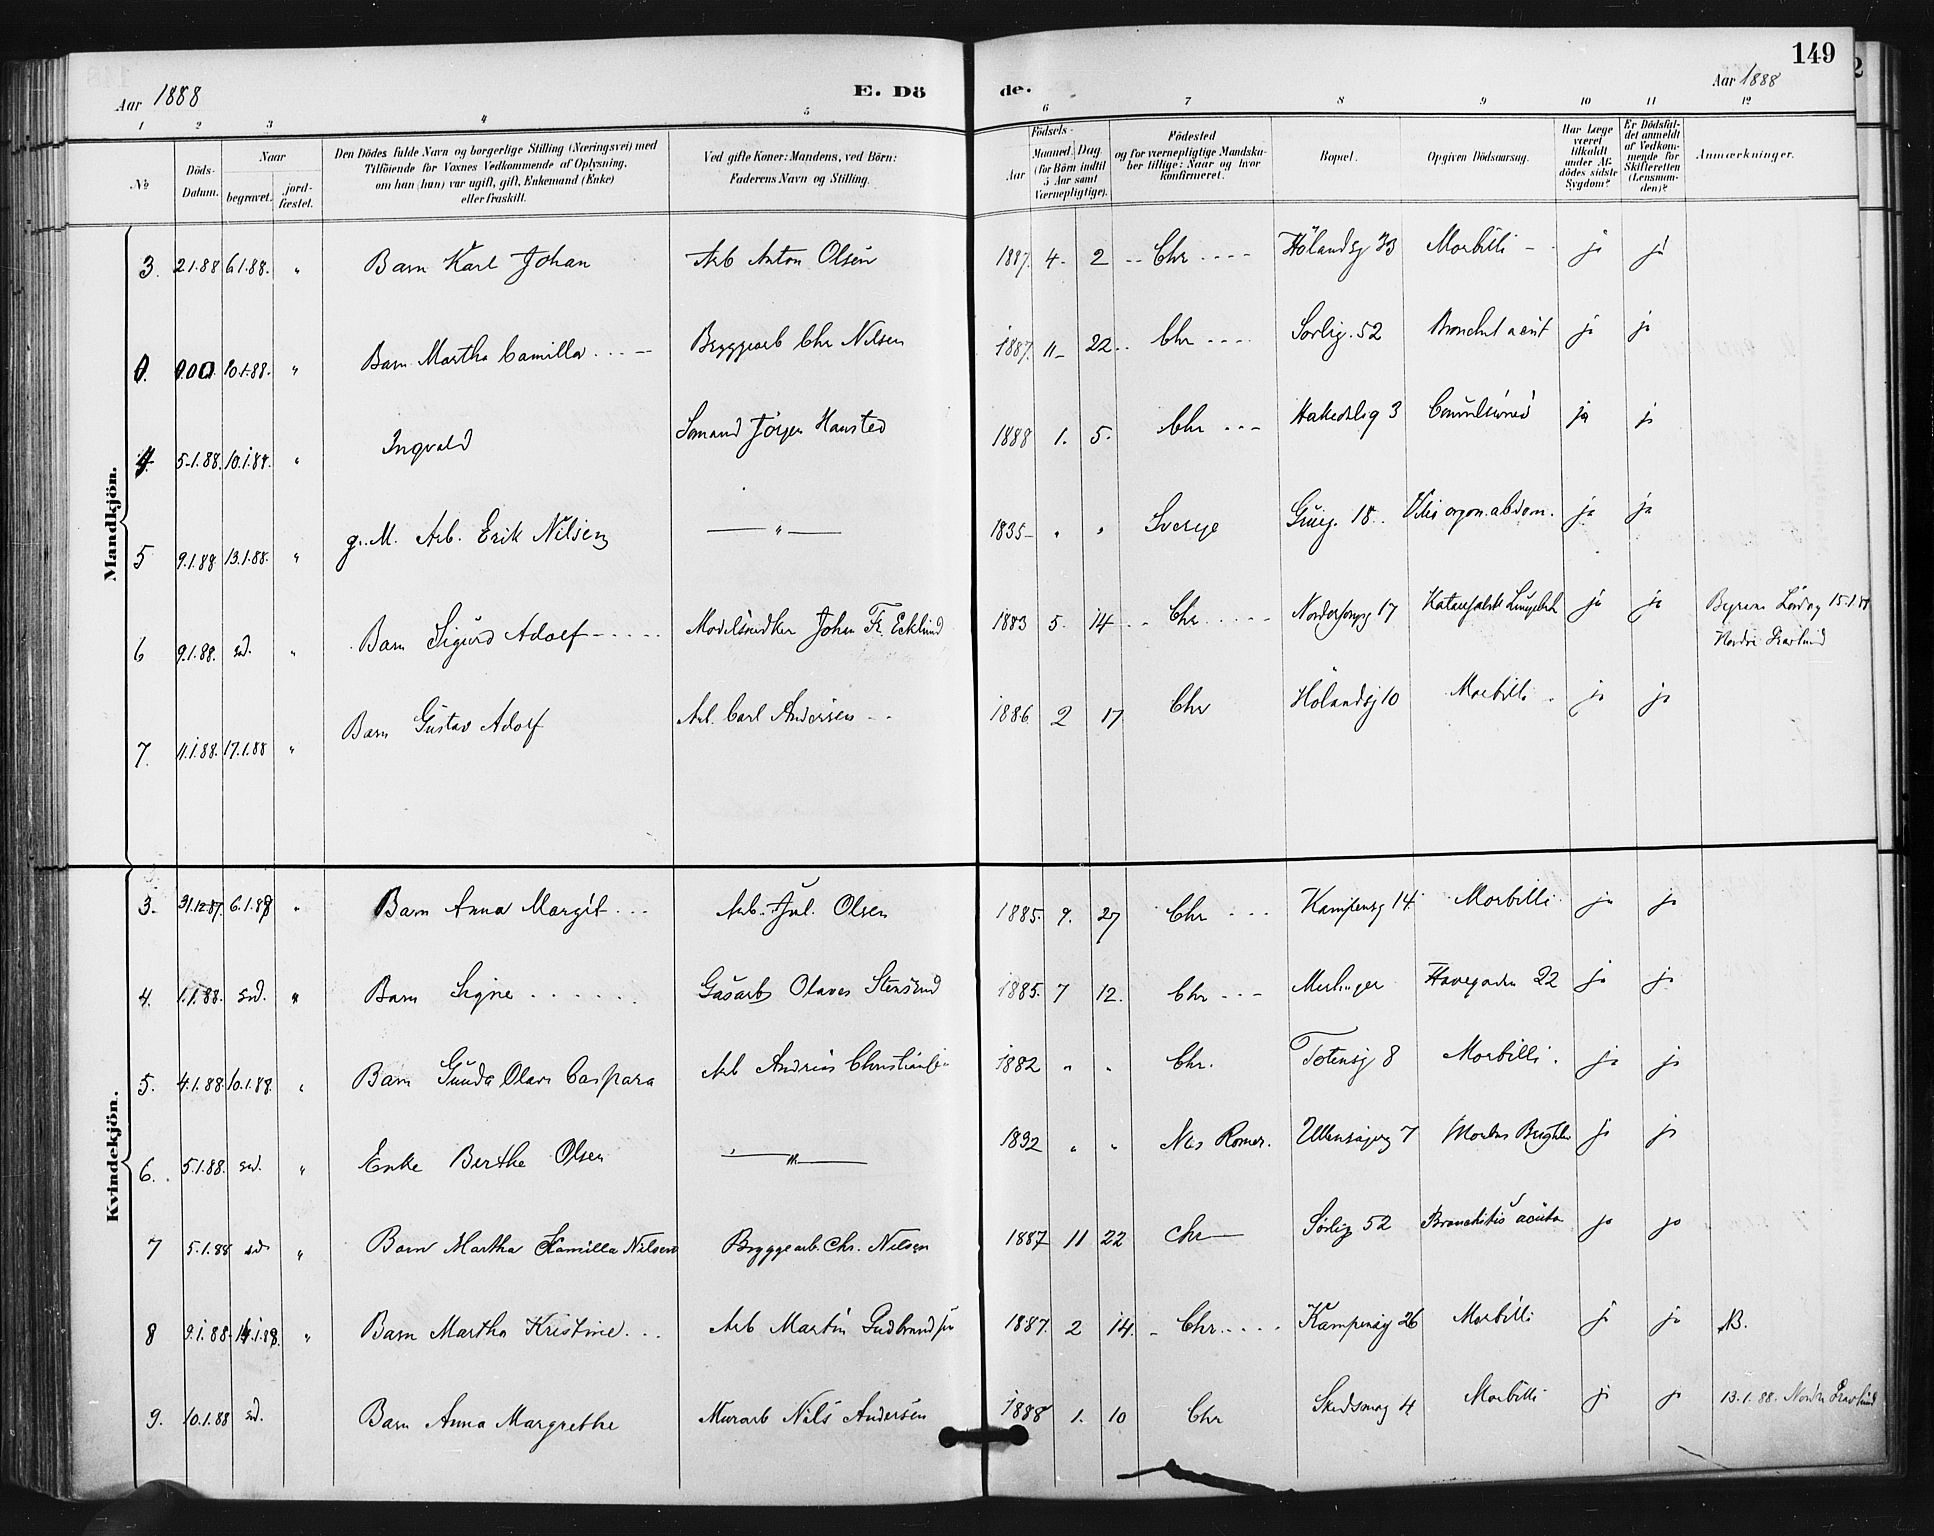 149
Aar 1888
E. Dö
de.
Aar 1888
1 2 3 4 5 6 7 8 9 10 11 12
No
Döds-
Datum.
Naar
begravet.
jord-
fæstet.
Den Dödes fulde Navn og borgerlige Stilling (Næringsvei) med
Tilföiende for Voxnes Vedkommende af Oplysning,
om han (hun) var ugift, gift, Enkemand (Enke)
eller fraskilt.
Ved gifte Koner: Mandens, ved Börn:
Faderens Navn og Stilling.
Födsels-
Aar
Maaned. Dag
(for Börn indtil
5 Aar samt
Værnepligtige).
Födested
og for værnepligtige Mandska-
ber tillige: Naar og hvor
konfirmeret.
Bopæl.
Opgiven Dödsaarsag.
Har Læge
været
tilkaldt
under Af-
dödes sidste
Sygdom?
Er Dödsfal-
det anmeldt
af Vedkom-
mende for
Skifteretten
(Lensman-
den)?
Anmærkninger.
Mandkjön.
3. 2.1.88 6.1.88. " Barn Karl Johan Arb Anton Olsen 1887. 4. 2 Chr Hölandsg 33 Morbilli ja ja
10.1.88. " Barn Martha Camilla Bryggearb Chr Nilsen 1887. 11 22 Chr Sorlig. 52 Bronchit acut ja ja
4 5.1.88. 10.1.88. " Ingvald Somand Jörgen Hansted 1888 1. 5. Chr Hakedslig 3 ja ja
5 9.1.88 13.1.88. " g. M. Arb. Erik Nilsen — " — 1835 " " Sverige Grueg. 18. Vitii organ. abdom. ja ja
6 9.1.88. sd. " Barn Sigurd Adolf Modelsnedker Johan Fr. Ecklund 1883 5. 14 Chr 17 Katarhalsk Lungebet ja ja Lördag 15.1.88
Nordre Gravlund
7. 11.1.88. 17.1.88 " Barn Gustav Adolf Arb. Carl Andersen 1886 2 17 Chr Hölandsg 10 Morbilli ja ja
Kvindekjön.
3. 31.12.87. 6.1.88 " Barn Anna Margit Arb. Jul. Olsen 1885. 9. 27 Chr Kampensg 14 Morbilli ja ja
4. 1.1.88. sd. " Barn Signe Gasarb Olaves Stensrud 1885. 7 12. Chr Havegaden 22 ja ja
5. 4.1.88 10.1.88. " Barn Gunda Olava Caspara Arb Andreas Christiansen 1882 " " Chr. Totensg 8 Morbilli. ja ja
6. 5.1.88. sd. " Enke Berthe Olsen — " — 1832 " " Nes Romer. Ullensagerg 7 Morbus Brightii ja ja
7 5.1.88 sd " Barn Martha Kamilla Nilsen Bryggearb. Chr. Nilsen 1887 11 22 Chr Sörlig 52 Bronchitis acuta ja ja
8 9.1.88. 14.1.88. " Barn Martha Kristine Arb Martin Gudbrandsen 1887. 2 14. Chr Kampensg 26 Morbilli ja ja B.
9. 10.1.88 sd. Barn Anna Margrethe Murarb Nils Andersen 1888 1. 10 Chr Skedsmog 4 Morbilli ja ja 13.1.88. Nordre Gravlund